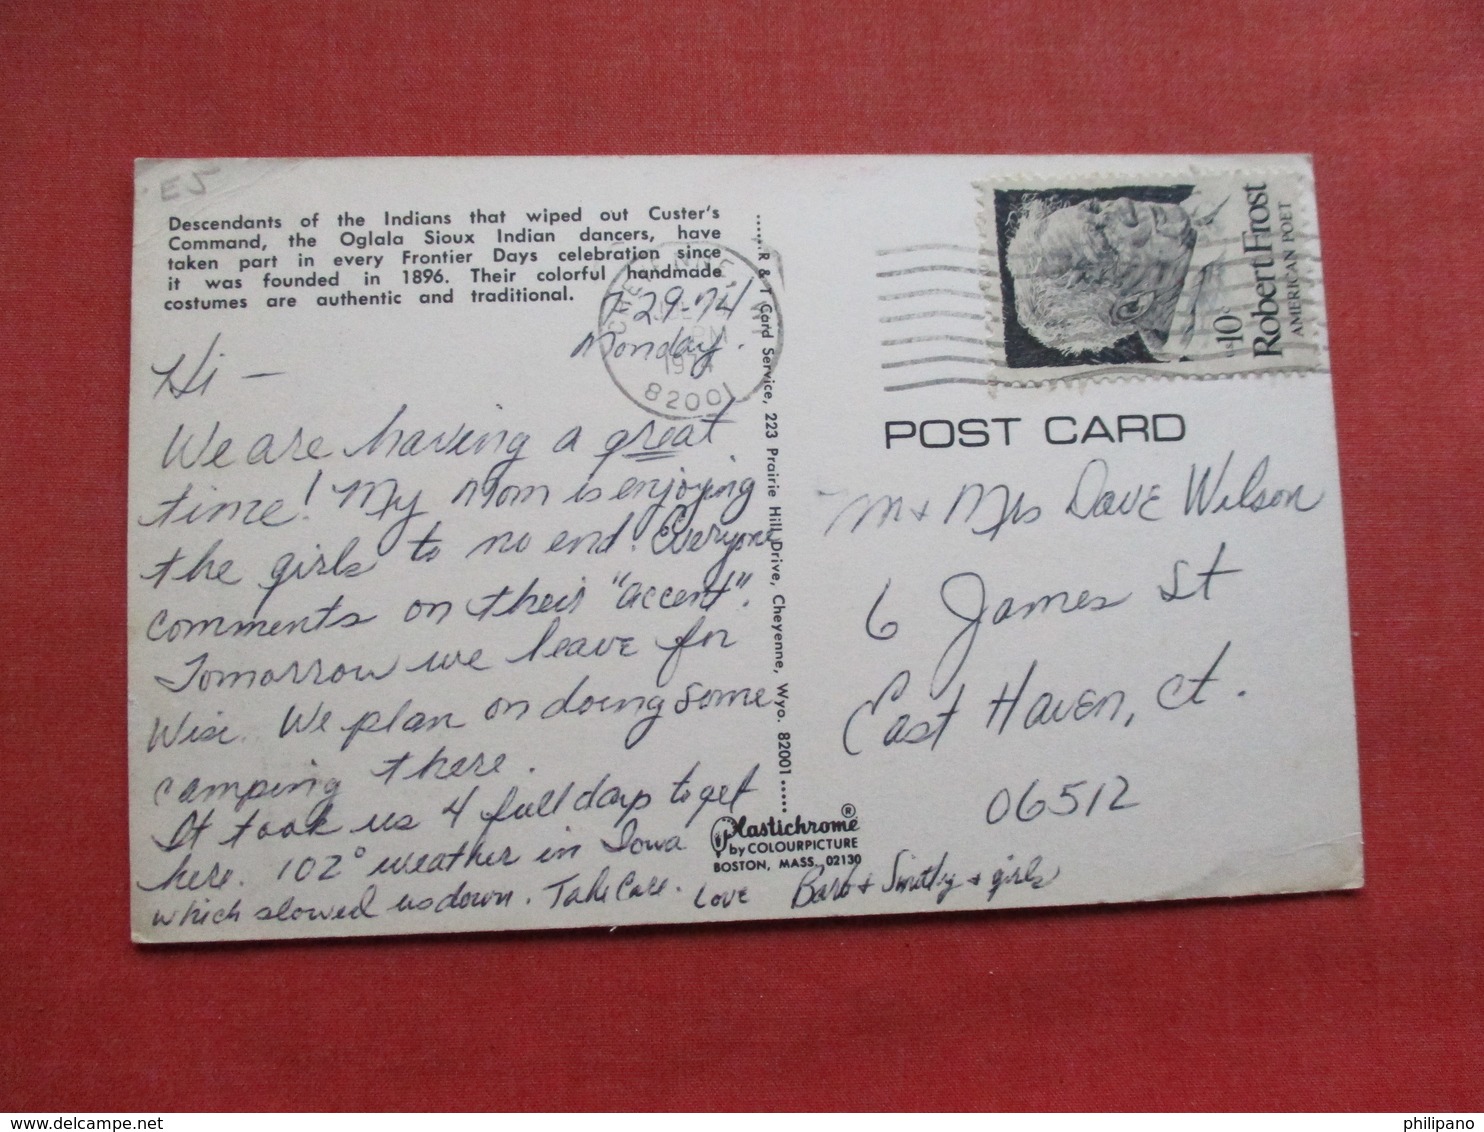 E5
Descendants of the Indians that wiped out Custer's
Command, the Oglala Sioux Indian dancers, have
taken part in every Frontier Days celebration since
it was founded in 1896. Their colorful handmade
costumes are authentic and traditional.
7-29-74
Monday.
Hi —
We are having a great
time! My Mom is enjoying
the girls to no end. Everyone
comments on their "accent".
Tomorrow we leave for
Wisc. We plan on doing some
camping there.
It took us 4 full days to get
here. 102° weather in Iowa
which slowed us down. Take Care. Love Barb + Smitty + girls
CHEYENNE
PM
1974
82001
......R & T Card Service, 223 Prairie Hill Drive, Cheyenne, Wyo. 82001.....
Plastichrome®
by COLOURPICTURE
BOSTON, MASS. 02130
Robert Frost
AMERICAN POET
US 10c
POST CARD
Mr + Mrs Dave Wilson
6 James St
East Haven, Ct.
06512
delcampe.net
philipano